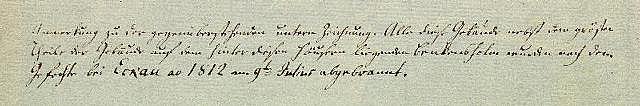 Anmerkung zu der gegenüberstehenden untern Zeichnung. Alle diese Gebäude nebst dem grösten
Theile der Gebäude auf dem hinter diesen Häusern liegenden Benkensholm wurden nach dem
Gefechte bei Eckau ao 1812 am 9t Julius abgebrannt.